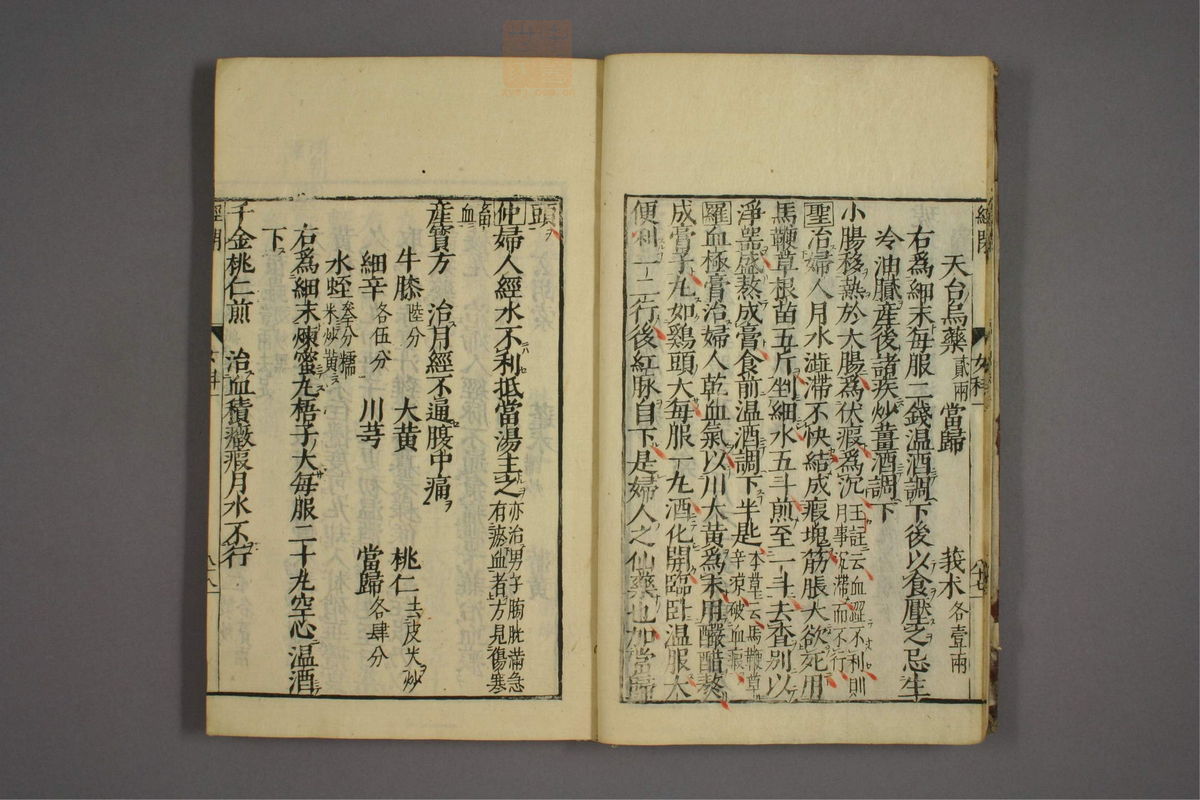 天台烏藥貳兩 當歸 莪朮各壹兩
右爲細末每服二錢温酒調下後以食壓之忌生
冷油膩産後諸疾炒薑酒調下
小腸移熱於大腸爲伏瘕爲沉王註云血澀不利則月事沉滯而不行
聖治婦人月水澁滯不快結成瘕塊筋脹大欲死用
馬鞭草根苗五斤剉細水五斗煎至一斗去査别以
淨器盛熬成膏食前温酒調下半匙本草云馬鞭草辛凉破血瘕
羅血極膏治婦人乾血氣以川大黄爲末用釅醋熬
成膏子丸如鷄頭大每服一丸酒化開臨臥温服大
便利一二行後紅脉自下是婦人之仙藥也加當歸
頭
仲婦人經水不利抵當湯主之亦治男子膀胱滿急有瘀血者方見傷寒
畜血
産寳方 治月經不通腹中痛
牛膝陸分 大黄 桃仁去皮尖炒
細辛各伍分 川芎 當歸各肆分
水蛭叄分糯米炒黄
右爲細末煉蜜丸梧子大每服二十丸空心温酒
下
千金桃仁煎 治血積癥瘕月水不行